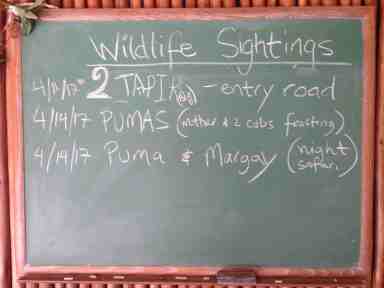 Wildlife Sightings
4/11/17 2 TAPIR - entry road
4/14/17 PUMAS (mother & 2 cubs feasting)
4/14/17 Puma & Margay (night safari)